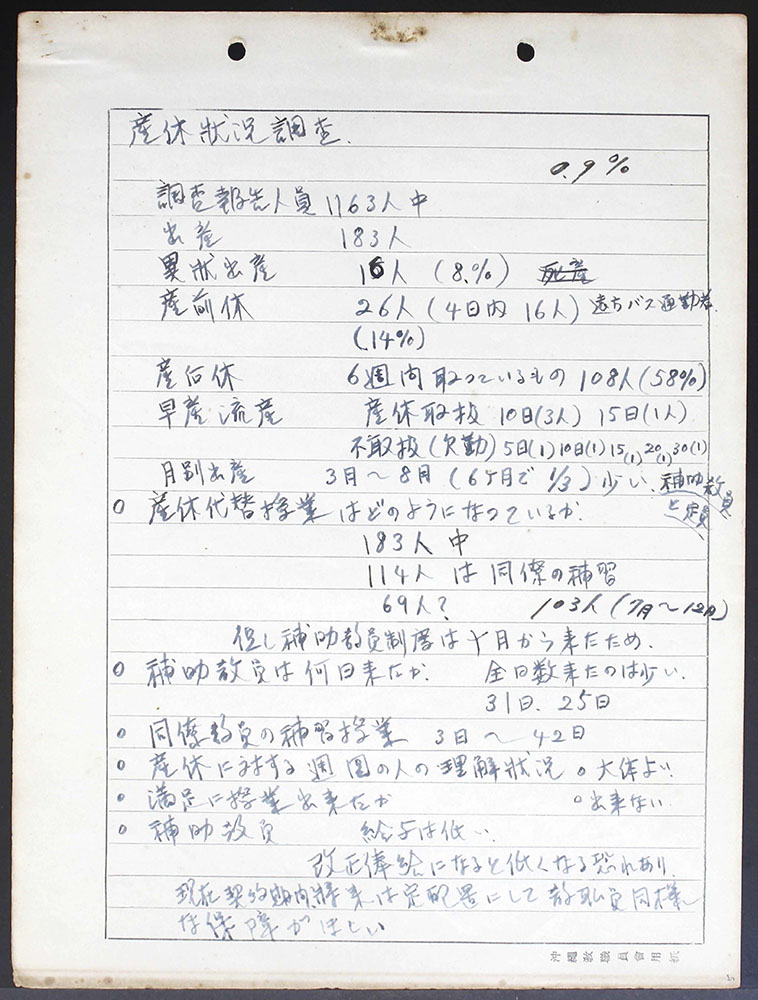 産休狀況調査.
0.9%
調査報告人員 1163人中
出産 183人
異狀出産 16人 (8.%) 死産
産前休 26人 (4日内 16人) 遠方バス通勤者.
(14%)
産后休 6週间取っているもの 108人(58%)
早産流産 産休取扱 10日(3人) 15日(1人)
不取扱(欠勤) 5日(1) 10日(1) 15(1) 20(1) 30(1)
月別出産 3月〜8月 (6ヶ月で 1/3) 少い. 補助教員
と定員
○ 産休代替授業はどのようになっているか.
183人中
114人は同僚の補習
69人? 103人(7月〜12月)
但し補助教員制度は十月から来たため.
○ 補助教員は何日来たか. 全日数来たのは少い.
31日. 25日
○ 同僚教員の補習授業 3日〜42日
○ 産休に対する週囲の人の理解狀況 ○大体よい
○ 満足に授業出来たか ○出来ない
○ 補助教員 給与は低い.
改正俸給になると低くなる恐れあり.
現在契約期内 将来は定配置にして教職員同様
な保障がほしい
沖縄教職員會用紙